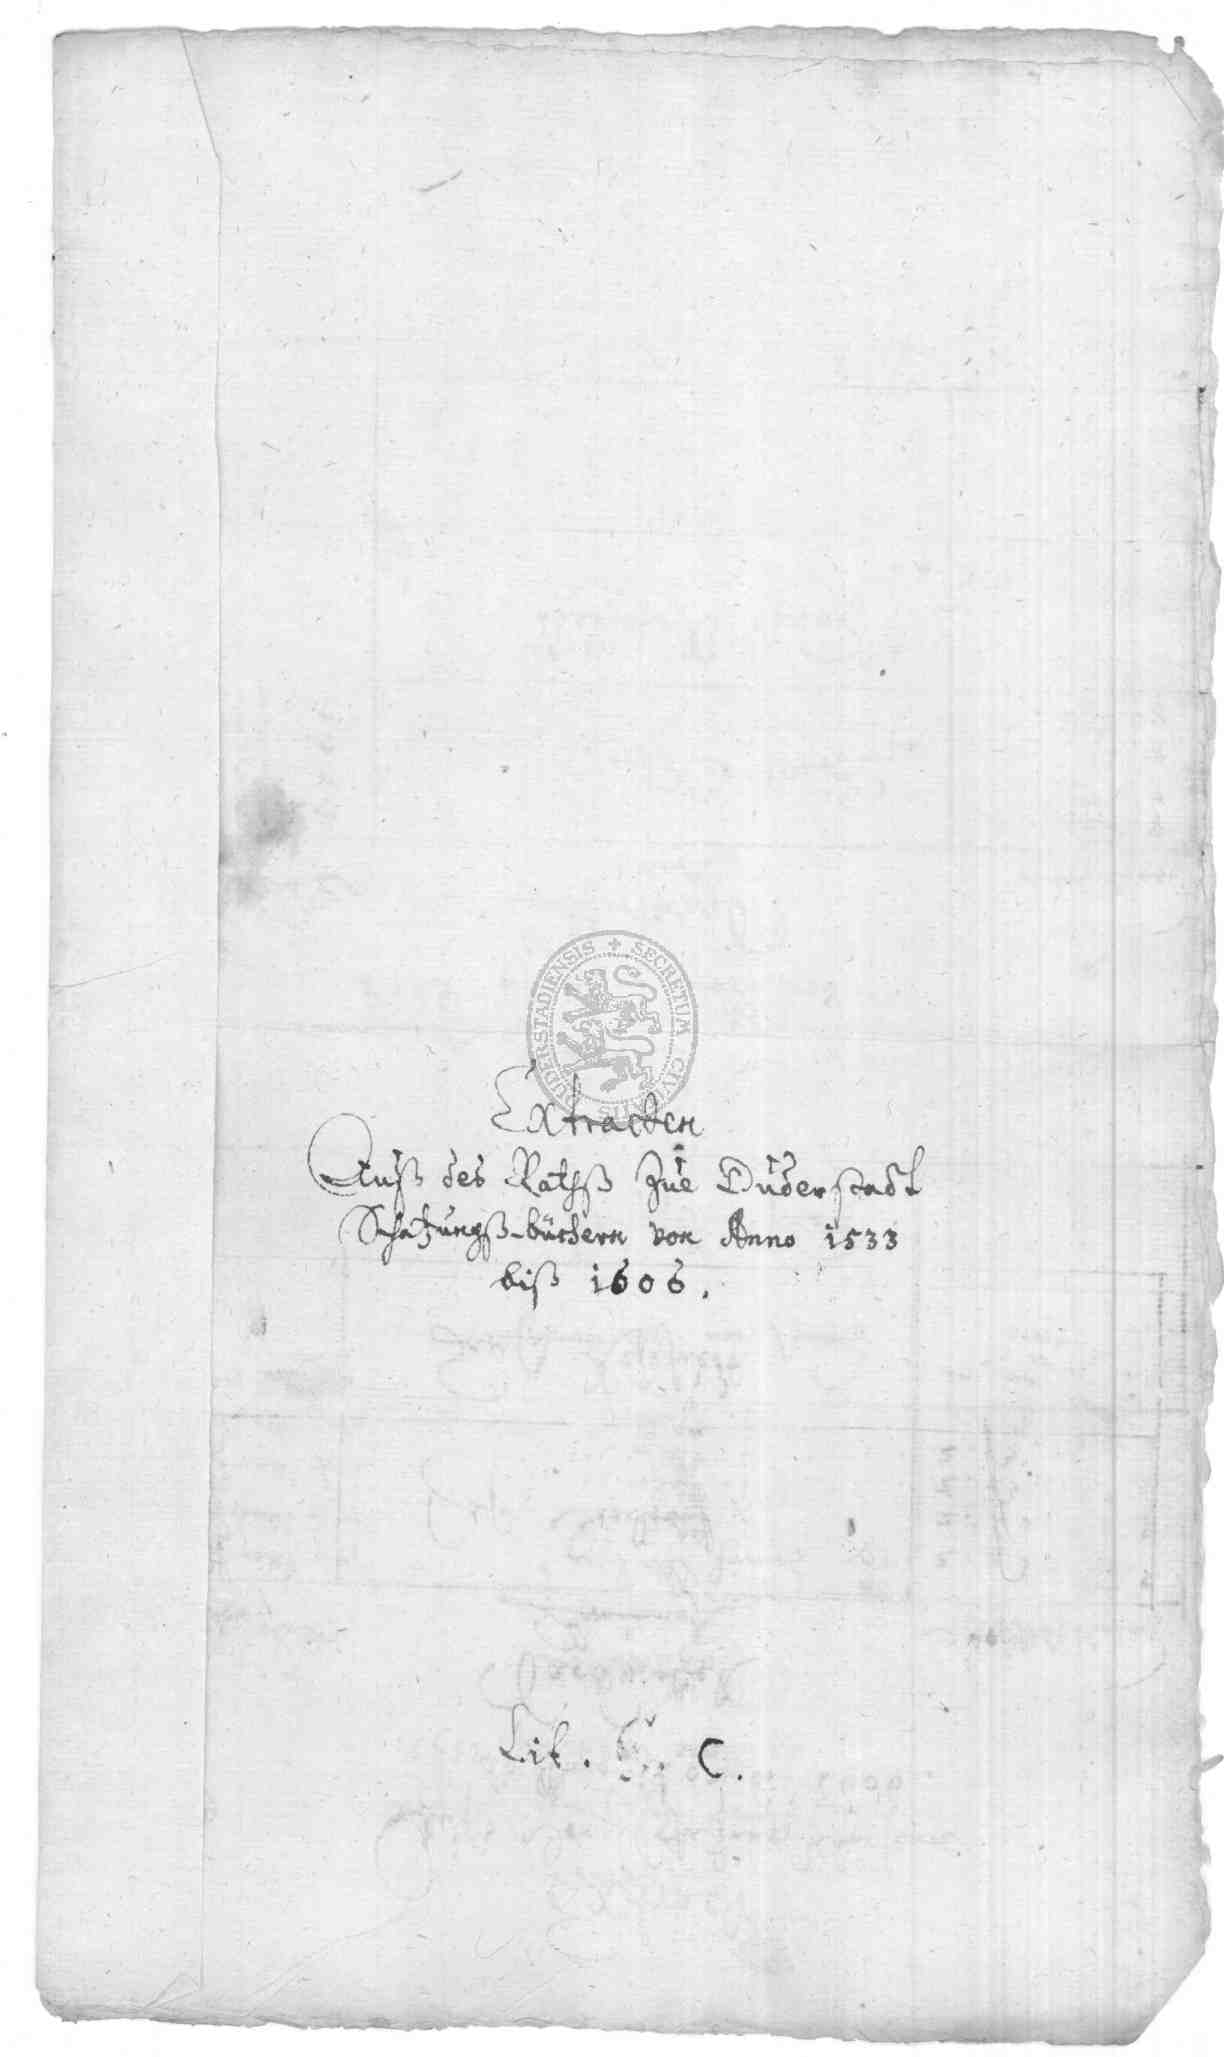 SECRETUM CIVITATIS DUDERSTADIENSIS
Extracten
Auß des Rathß Zue Duderstadt
Schatzungß-büchern von Anno 1533
biß 1606.
Lit. C.